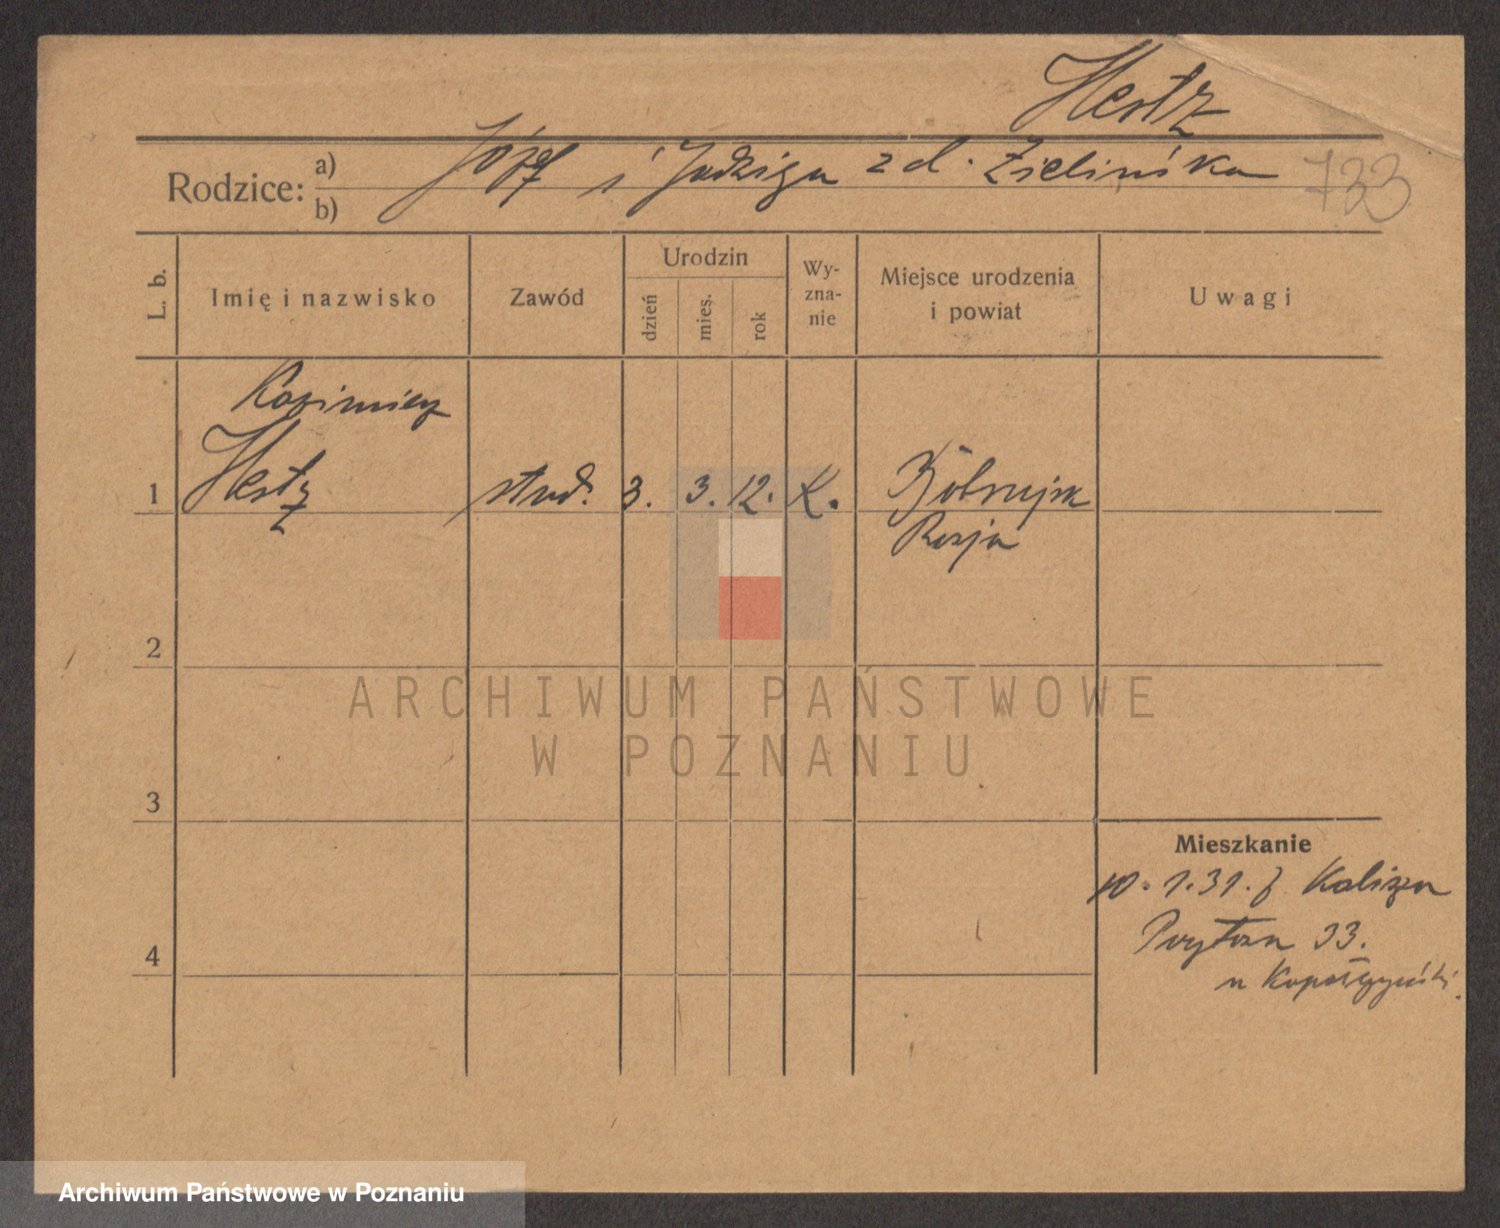 Hertz
Rodzice: a) Józef i Jadwiga z d. Zielińska 733
b)
L. b.
Imię i nazwisko
Zawód
Urodzin
dzień
mies.
rok
Wy-
zna-
nie
Miejsce urodzenia
i powiat
Uwagi
Kazimierz
1 Hertz stud. 3. 3. 12. K. Bobrujsk
Rosja
2
3
4
ARCHIWUM PAŃSTWOWE
W POZNANIU
Mieszkanie
10. 1. 31. z Kalisza
33.
u
Archiwum Państwowe w Poznaniu